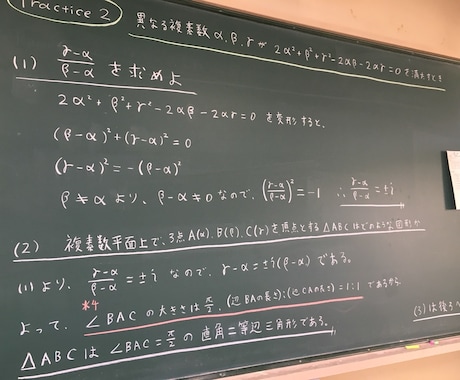 Practice 2
異なる複素数 α, β, γ が 2α²+β²+γ²-2αβ-2αγ=0 を満たすとき
(1) (γ-α)/(β-α) を求めよ
2α²+β²+γ²-2αβ-2αγ=0 を変形すると、
(β-α)²+(γ-α)²=0
(γ-α)²=-(β-α)²
β≠α より、β-α≠0 なので、((γ-α)/(β-α))²=-1 ∴ (γ-α)/(β-α)=±i
(2) 複素数平面上で、3点A(α), B(β), C(γ)を頂点とする △ABCはどのような図形か
(1)より、(γ-α)/(β-α)=±i なので、γ-α=±i(β-α) である。
*4
よって、∠BAC の大きさは π/2, (辺BAの長さ):(辺CAの長さ)=1:1 であるから
△ABC は ∠BAC=π/2 の 直角二等辺三角形である。
(3)は後ろへ